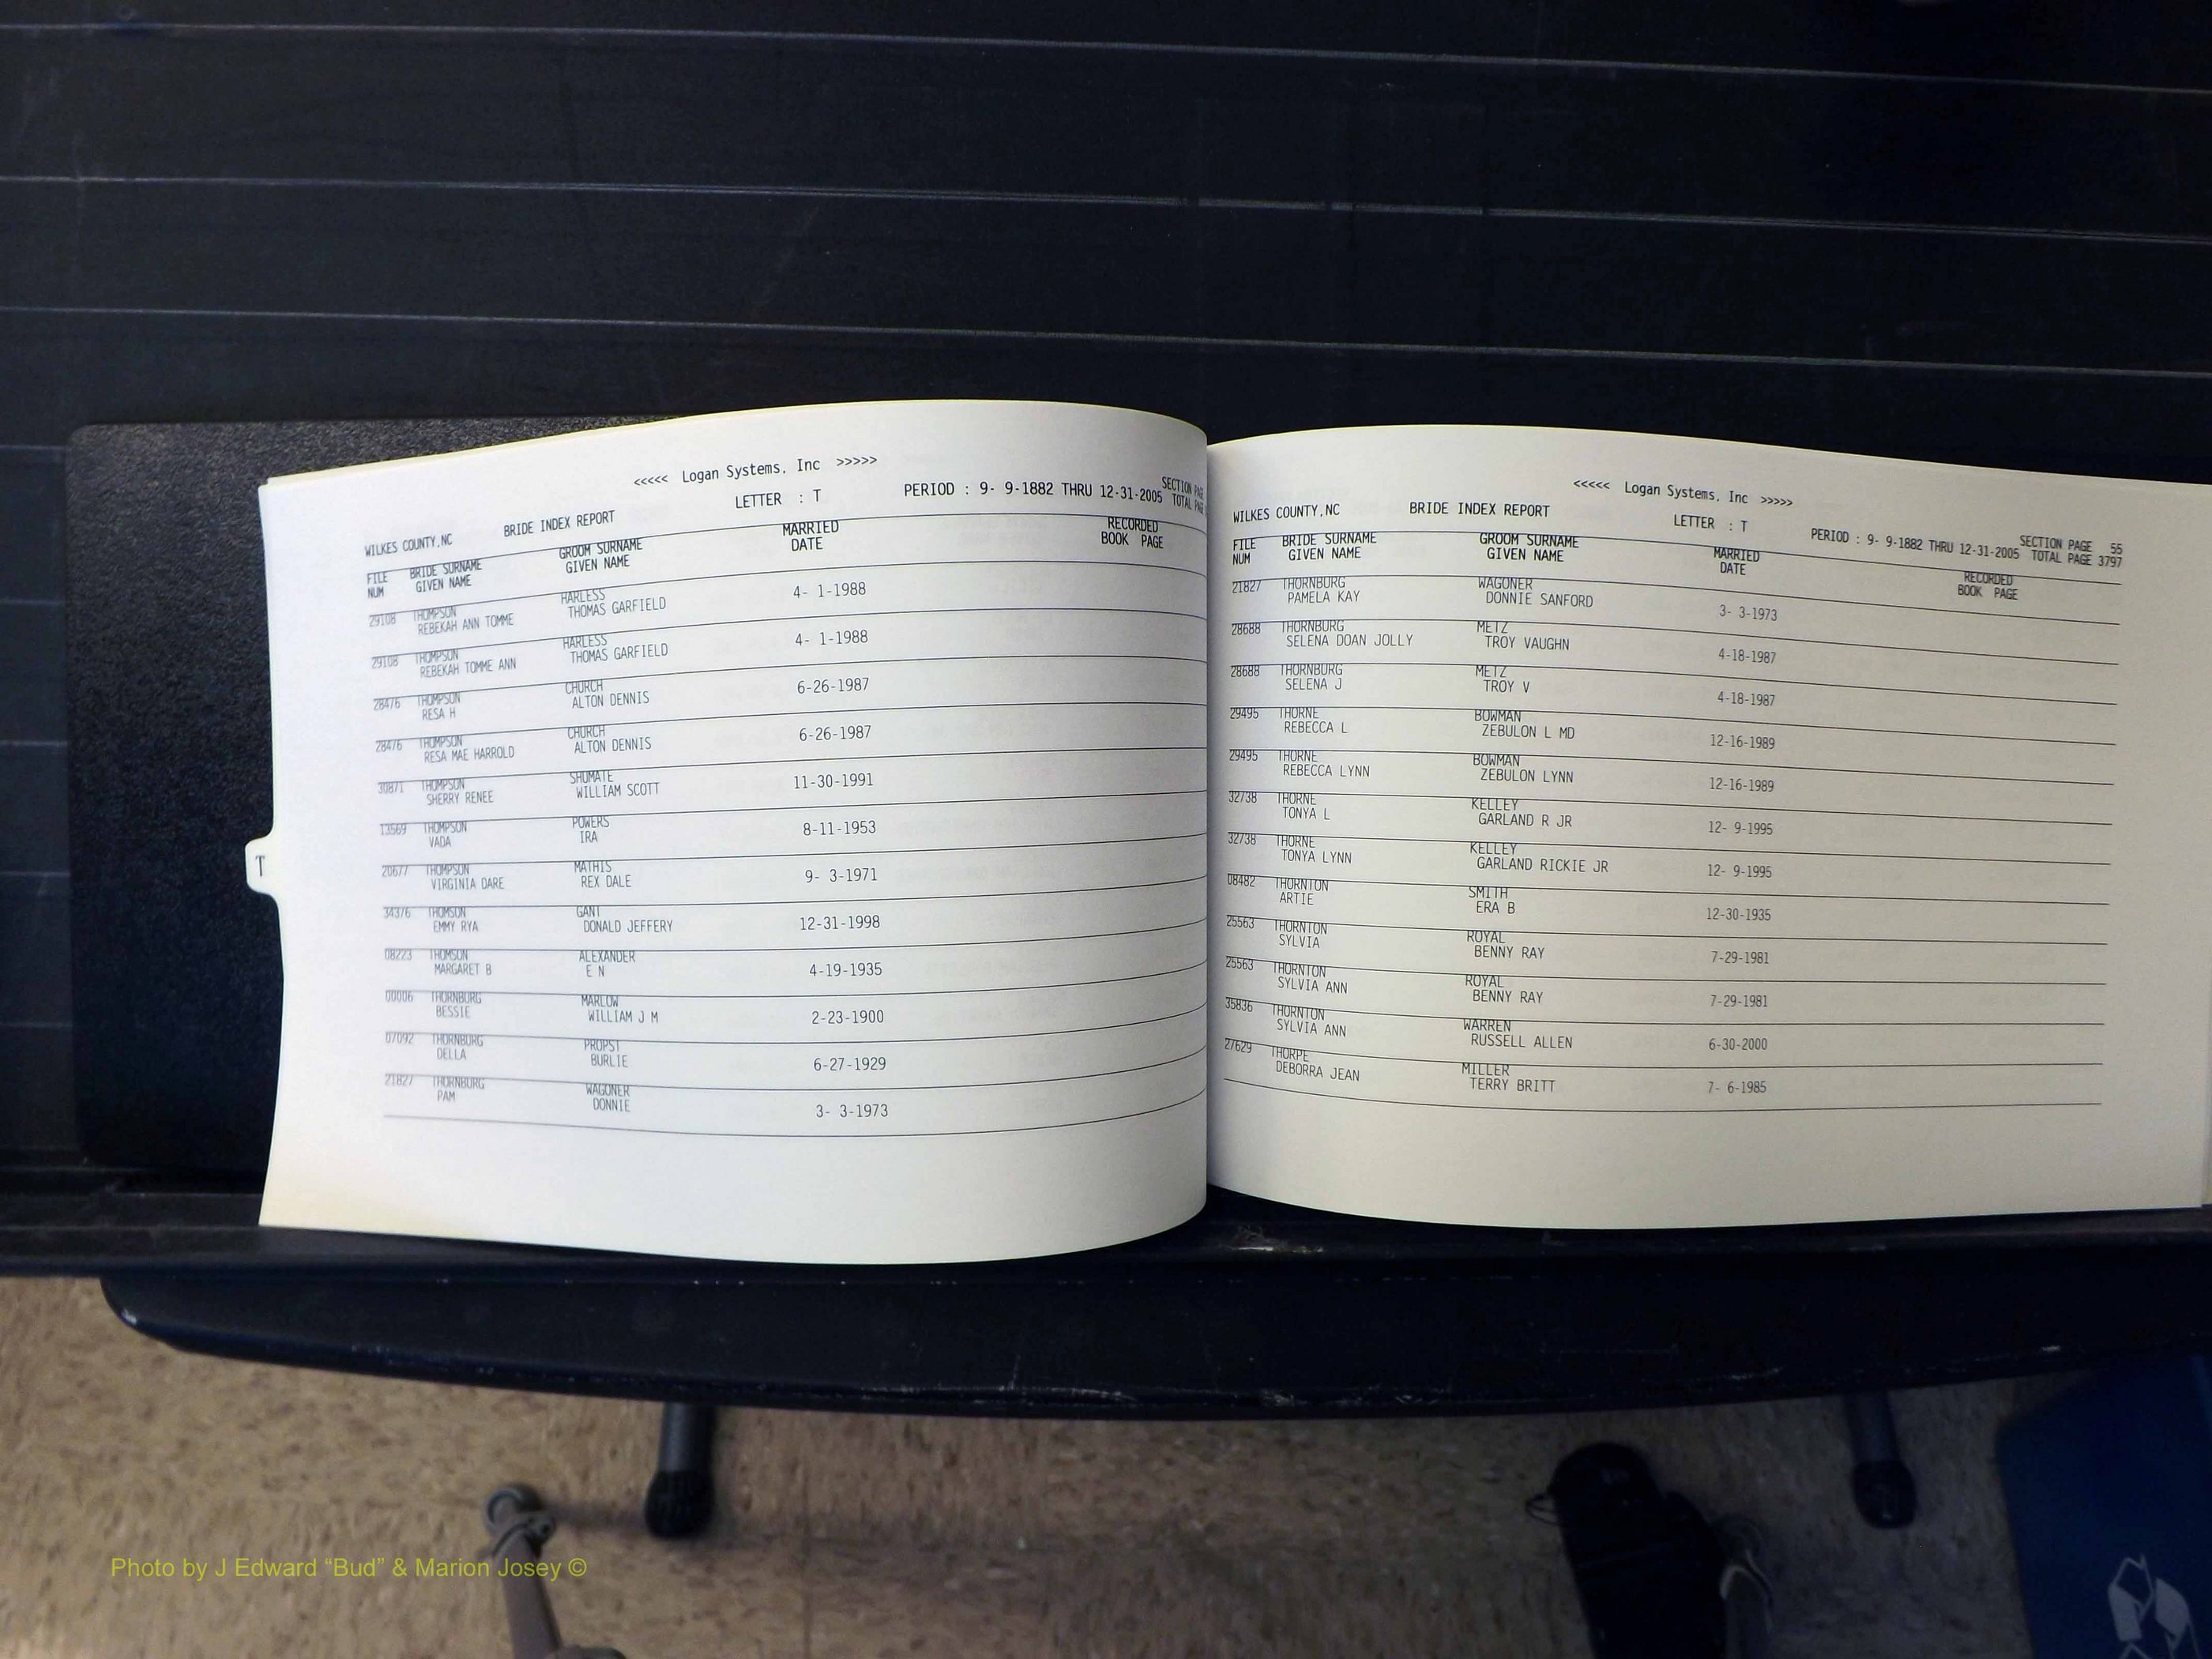 <<<<< Logan Systems, Inc >>>>>
WILKES COUNTY,NC BRIDE INDEX REPORT LETTER : T PERIOD : 9- 9-1882 THRU 12-31-2005 SECTION PAGE
TOTAL PAGE
FILE BRIDE SURNAME GROOM SURNAME MARRIED RECORDED
NUM GIVEN NAME GIVEN NAME DATE BOOK PAGE
29108 THOMPSON HARLESS
REBEKAH ANN TOMME THOMAS GARFIELD 4- 1-1988
29108 THOMPSON HARLESS
REBEKAH TOMME ANN THOMAS GARFIELD 4- 1-1988
28476 THOMPSON CHURCH
RESA H ALTON DENNIS 6-26-1987
28476 THOMPSON CHURCH
RESA MAE HARROLD ALTON DENNIS 6-26-1987
30871 THOMPSON SHUMATE
SHERRY RENEE WILLIAM SCOTT 11-30-1991
13569 THOMPSON POWERS
VADA IRA 8-11-1953
20677 THOMPSON MATHIS
VIRGINIA DARE REX DALE 9- 3-1971
34376 THOMSON GANT
EMMY RYA DONALD JEFFERY 12-31-1998
08223 THOMSON ALEXANDER
MARGARET B E N 4-19-1935
00006 THORNBURG MARLOW
BESSIE WILLIAM J M 2-23-1900
07092 THORNBURG PROPST
DELLA BURLIE 6-27-1929
21827 THORNBURG WAGONER
PAM DONNIE 3- 3-1973
T
<<<<< Logan Systems, Inc >>>>>
WILKES COUNTY,NC BRIDE INDEX REPORT LETTER : T PERIOD : 9- 9-1882 THRU 12-31-2005 SECTION PAGE 55
TOTAL PAGE 3797
FILE BRIDE SURNAME GROOM SURNAME MARRIED RECORDED
NUM GIVEN NAME GIVEN NAME DATE BOOK PAGE
21827 THORNBURG WAGONER
PAMELA KAY DONNIE SANFORD 3- 3-1973
28688 THORNBURG METZ
SELENA DOAN JOLLY TROY VAUGHN 4-18-1987
28688 THORNBURG METZ
SELENA J TROY V 4-18-1987
29495 THORNE BOWMAN
REBECCA L ZEBULON L MD 12-16-1989
29495 THORNE BOWMAN
REBECCA LYNN ZEBULON LYNN 12-16-1989
32738 THORNE KELLEY
TONYA L GARLAND R JR 12- 9-1995
32738 THORNE KELLEY
TONYA LYNN GARLAND RICKIE JR 12- 9-1995
08482 THORNTON SMITH
ARTIE ERA B 12-30-1935
25563 THORNTON ROYAL
SYLVIA BENNY RAY 7-29-1981
25563 THORNTON ROYAL
SYLVIA ANN BENNY RAY 7-29-1981
35836 THORNTON WARREN
SYLVIA ANN RUSSELL ALLEN 6-30-2000
27629 THORPE MILLER
DEBORRA JEAN TERRY BRITT 7- 6-1985
Photo by J Edward “Bud” & Marion Josey ©